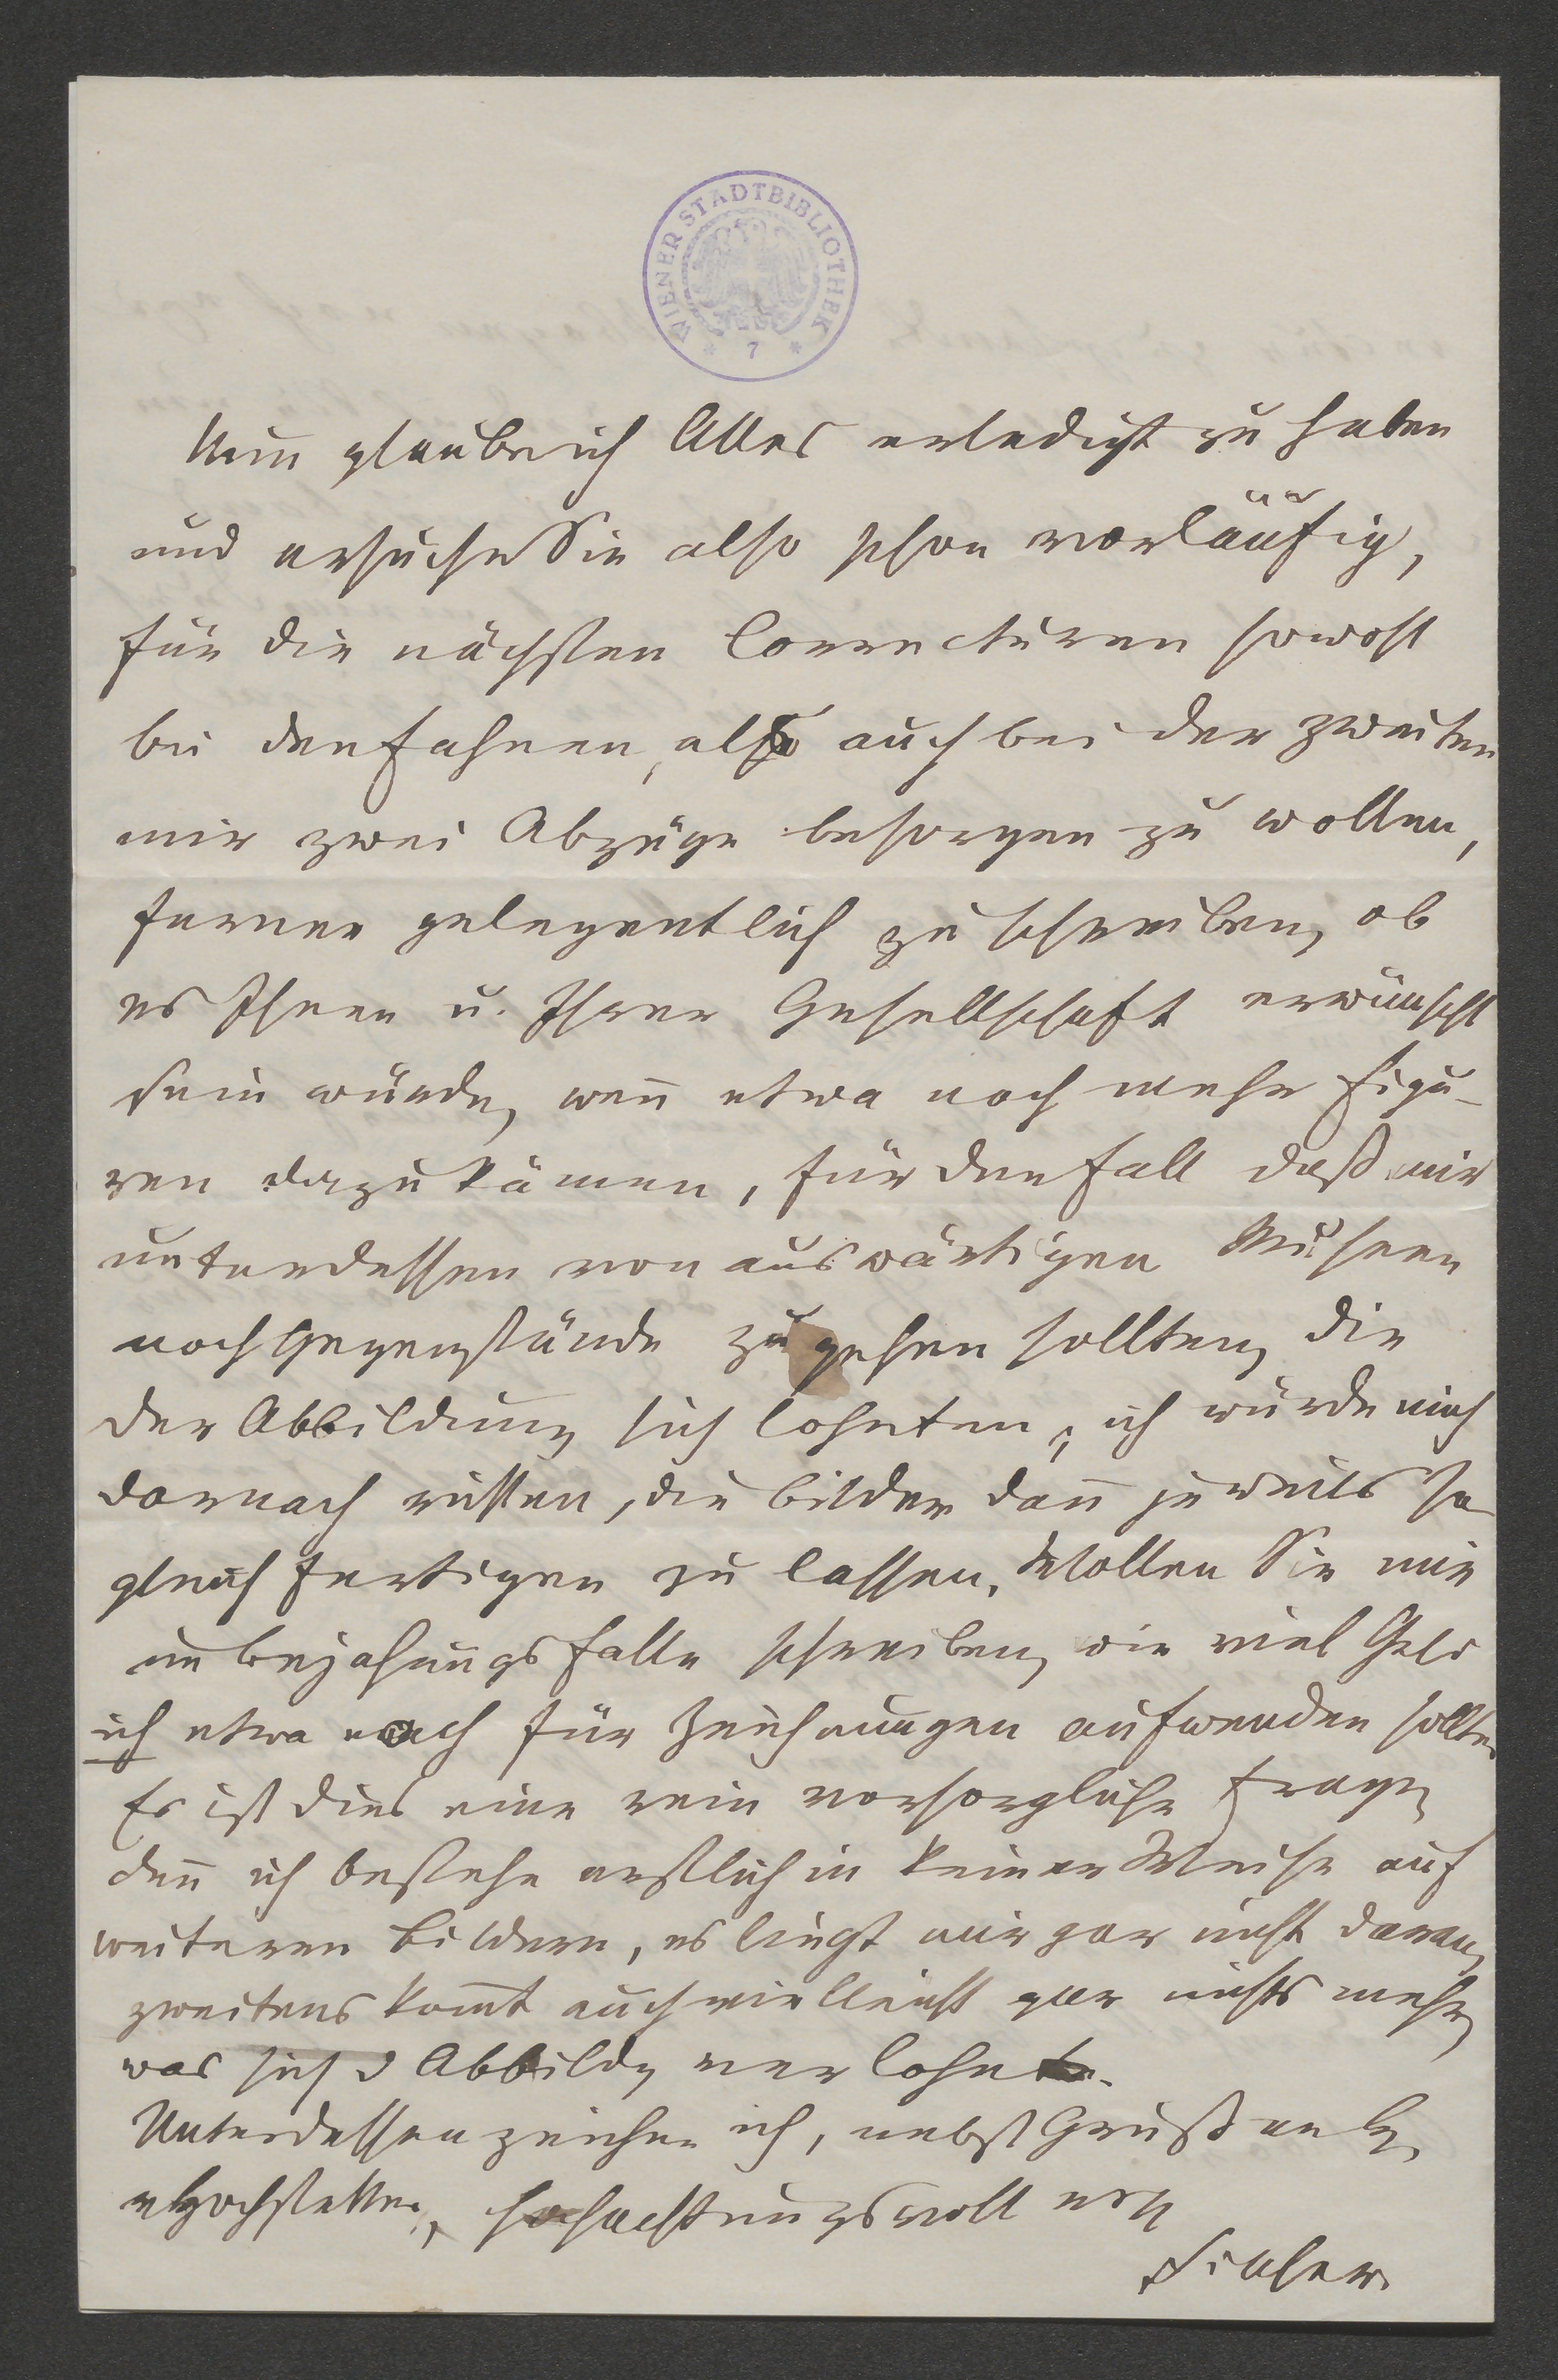 WIENER STADTBIBLIOTHEK
* 7 *
Nun glaube ich Alles erledigt zu haben
und ersuche Sie also schon vorläufig,
für die nächsten Correcturen sowohl
bei den Fahnen, als auch bei der zweiten
mir zwei Abzüge besorgen zu wollen,
ferner gelegentlich zu schreiben, ob
es Ihnen u. Ihrer Gesellschaft erwünscht
sein würde, wenn etwa noch mehr Figu-
ren dazu kämen, für den Fall daß mir
unterdessen von auswärtigen Museen
noch Gegenstände zugehen sollten, die
der Abbildung sich lohnten; ich würde mich
darnach richten, die Bilder dann jeweils so
gleich fertigen zu lassen. Wollen Sie mir
im Bejahungsfalle schreiben, wie viel Geld
ich etwa noch für Zeichnungen aufwenden sollte.
Es ist dies eine rein vorsorgliche Frage,
denn ich bestehe erstlich in keiner Weise auf
weiteren Bildern, es liegt mir gar nicht daran,
zweitens kommt auch vielleicht gar nichts mehr,
was sich d Abbildg verlohnt.
Unterdessen zeichne ich, nebst Gruß an H.
v Hochstetter, hochachtungsvoll